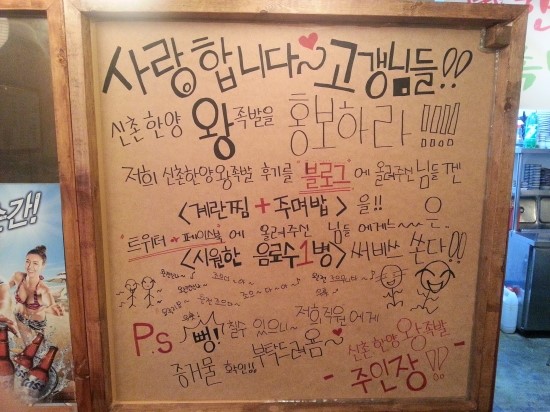 사랑합니다~ 고갱님들!!
신촌한양 왕족발을 홍보하라!!!!!
저희 신촌한양왕족발 후기를 "블로그"에 올려주신 님들껜
<계란찜+주며밥>을!! 는
"트위터+페이스북"에 올려주신 님들에게는~
<시원한 음료수1병> 써비쓰 쏜다!!
P.S 뻥! 칠수 있으니~ 저희직원에게
증거물 확인 부탁드려욤~
신촌한양왕족발
-주인장!!-
간!